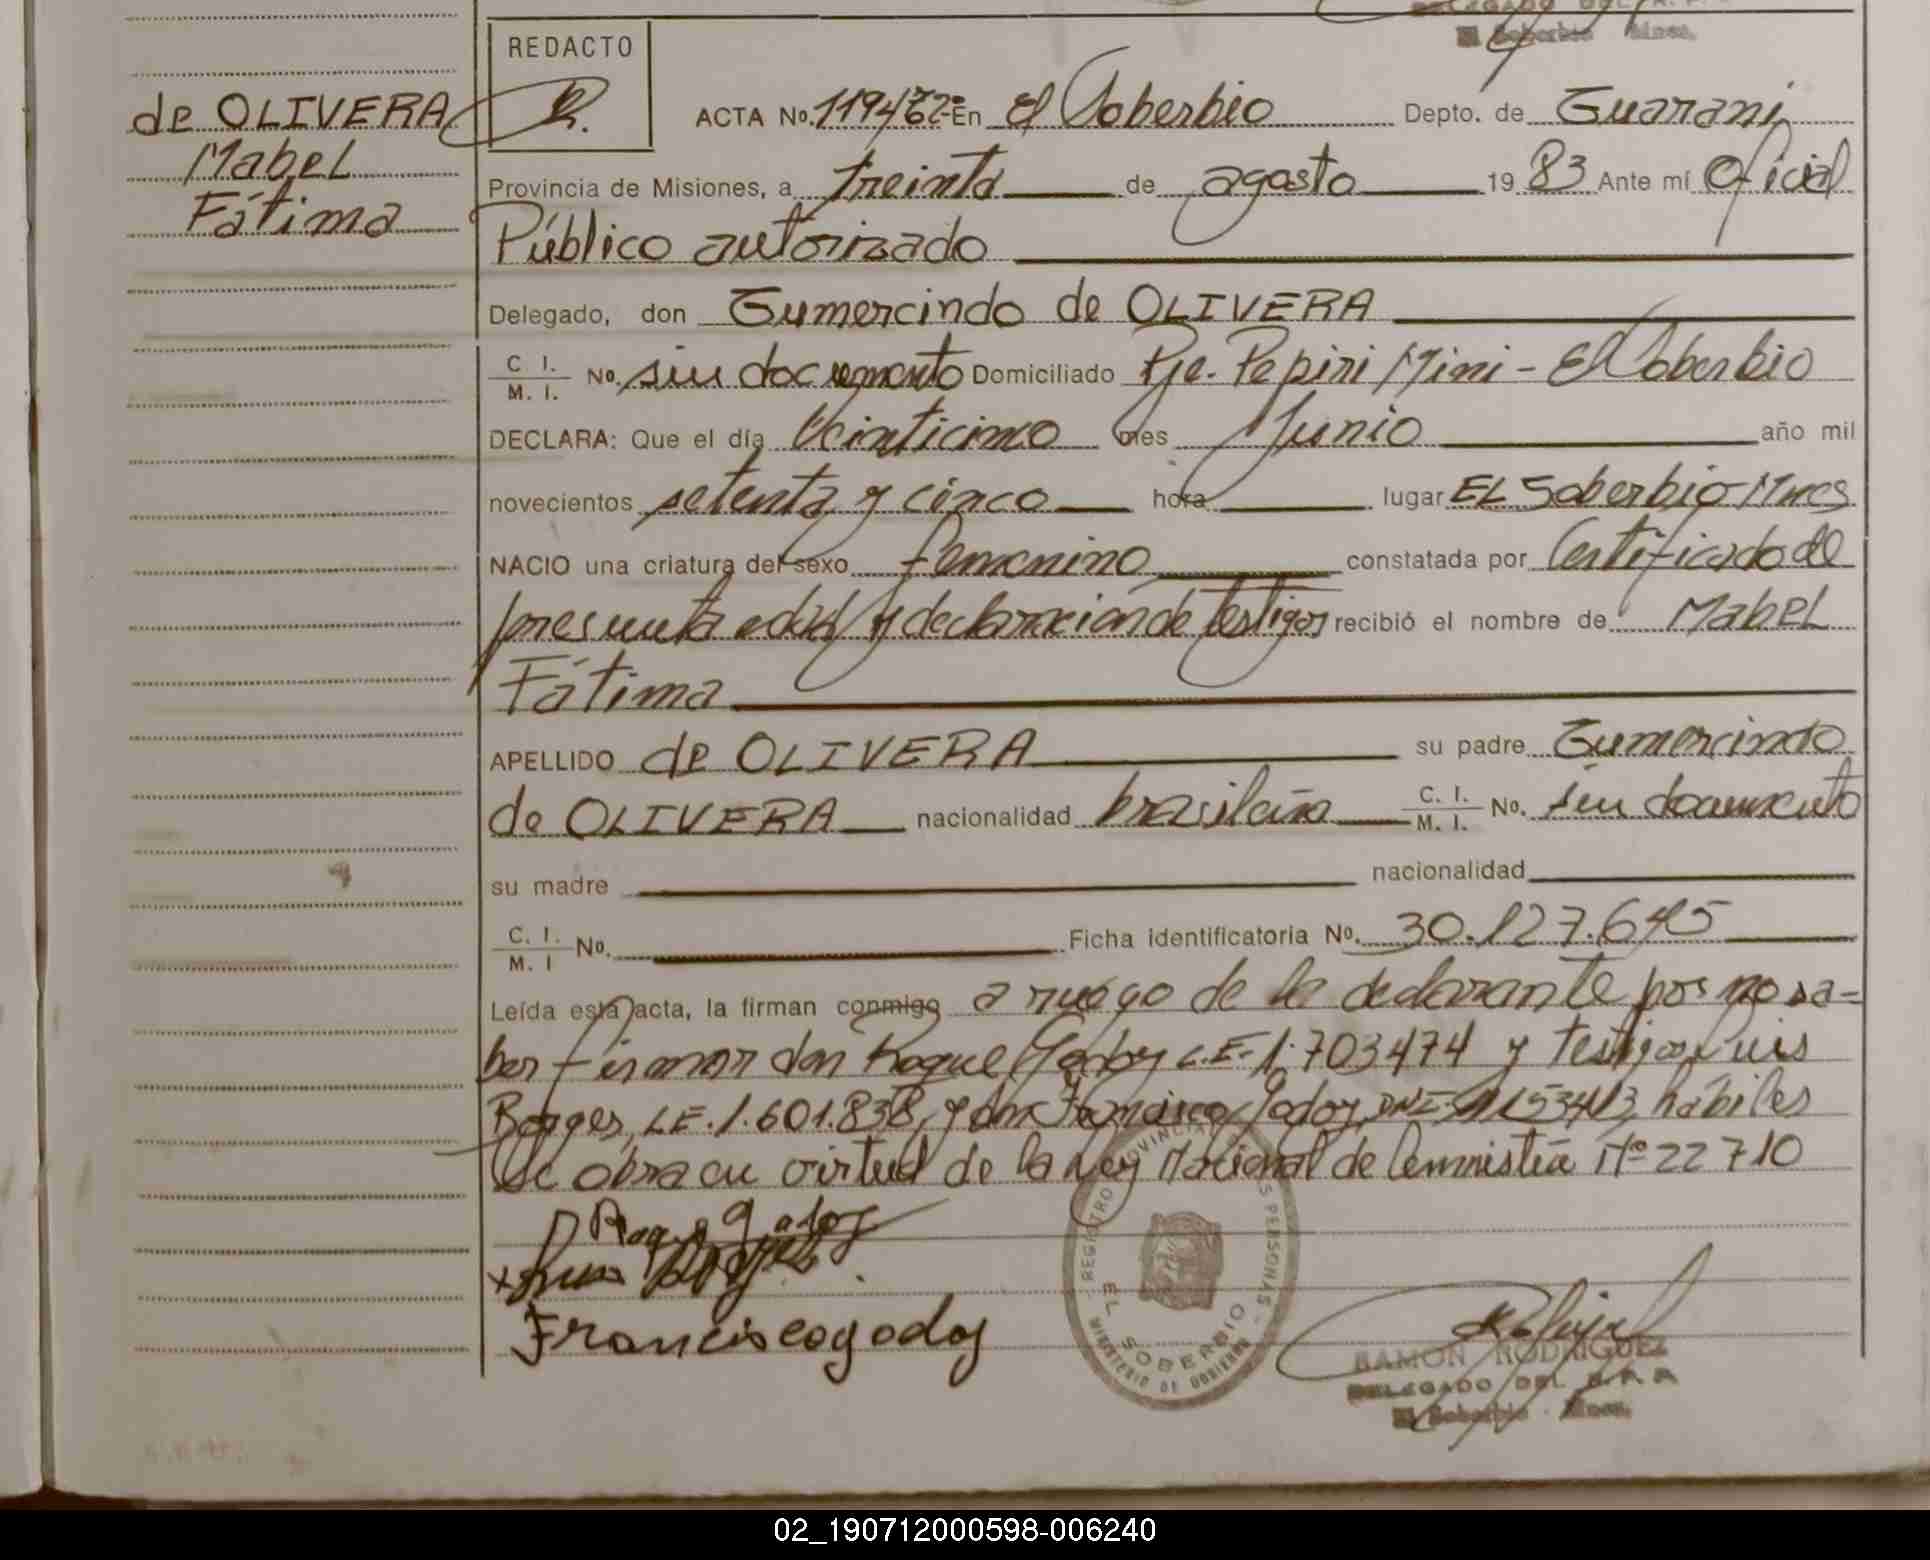 de OLIVERA
Mabel
Fátima
REDACTO
ACTA No. En El Soberbio Depto. de Guaraní
Provincia de Misiones, a treinta de agosto 19 83 Ante mí Oficial
Público autorizado
Delegado, don Gumercindo de OLIVERA
C. I.
M. I. No. sin documento Domiciliado Pje. Pepiri Mini - El Soberbio
DECLARA: Que el día Veinticinco mes Junio año mil
novecientos setenta y cinco hora lugar EL Soberbio Mnes
NACIO una criatura del sexo femenino constatada por Certificado de
presunta edad y declaración de testigos recibió el nombre de Mabel
Fátima
APELLIDO de OLIVERA su padre Gumercindo
de OLIVERA nacionalidad brasileña C. I. M. I. No. sin documento
su madre nacionalidad
C. I.
M. I No. Ficha identificatoria No. 30.127.645
Leída esta acta, la firman conmigo a ruego de la declarante por no sa=
ber firmar don Roque Godoy L.E. 1.703474 y testigos Luis
Borges, L.E. 1.601.838, y don Francisco Godoy, DNI hábiles
Se obra en virtud de la Ley Nacional de Nº 22710
Roque Godoy
Luis Borges
Francisco godoy
REGISTRO PROVINCIAL DE LAS PERSONAS
EL SOBERBIO
MINISTERIO DE GOBIERNO
RAMON RODRIGUEZ
DELEGADO DEL R. P. P.
El Soberbio - Mnes.
02_190712000598-006240